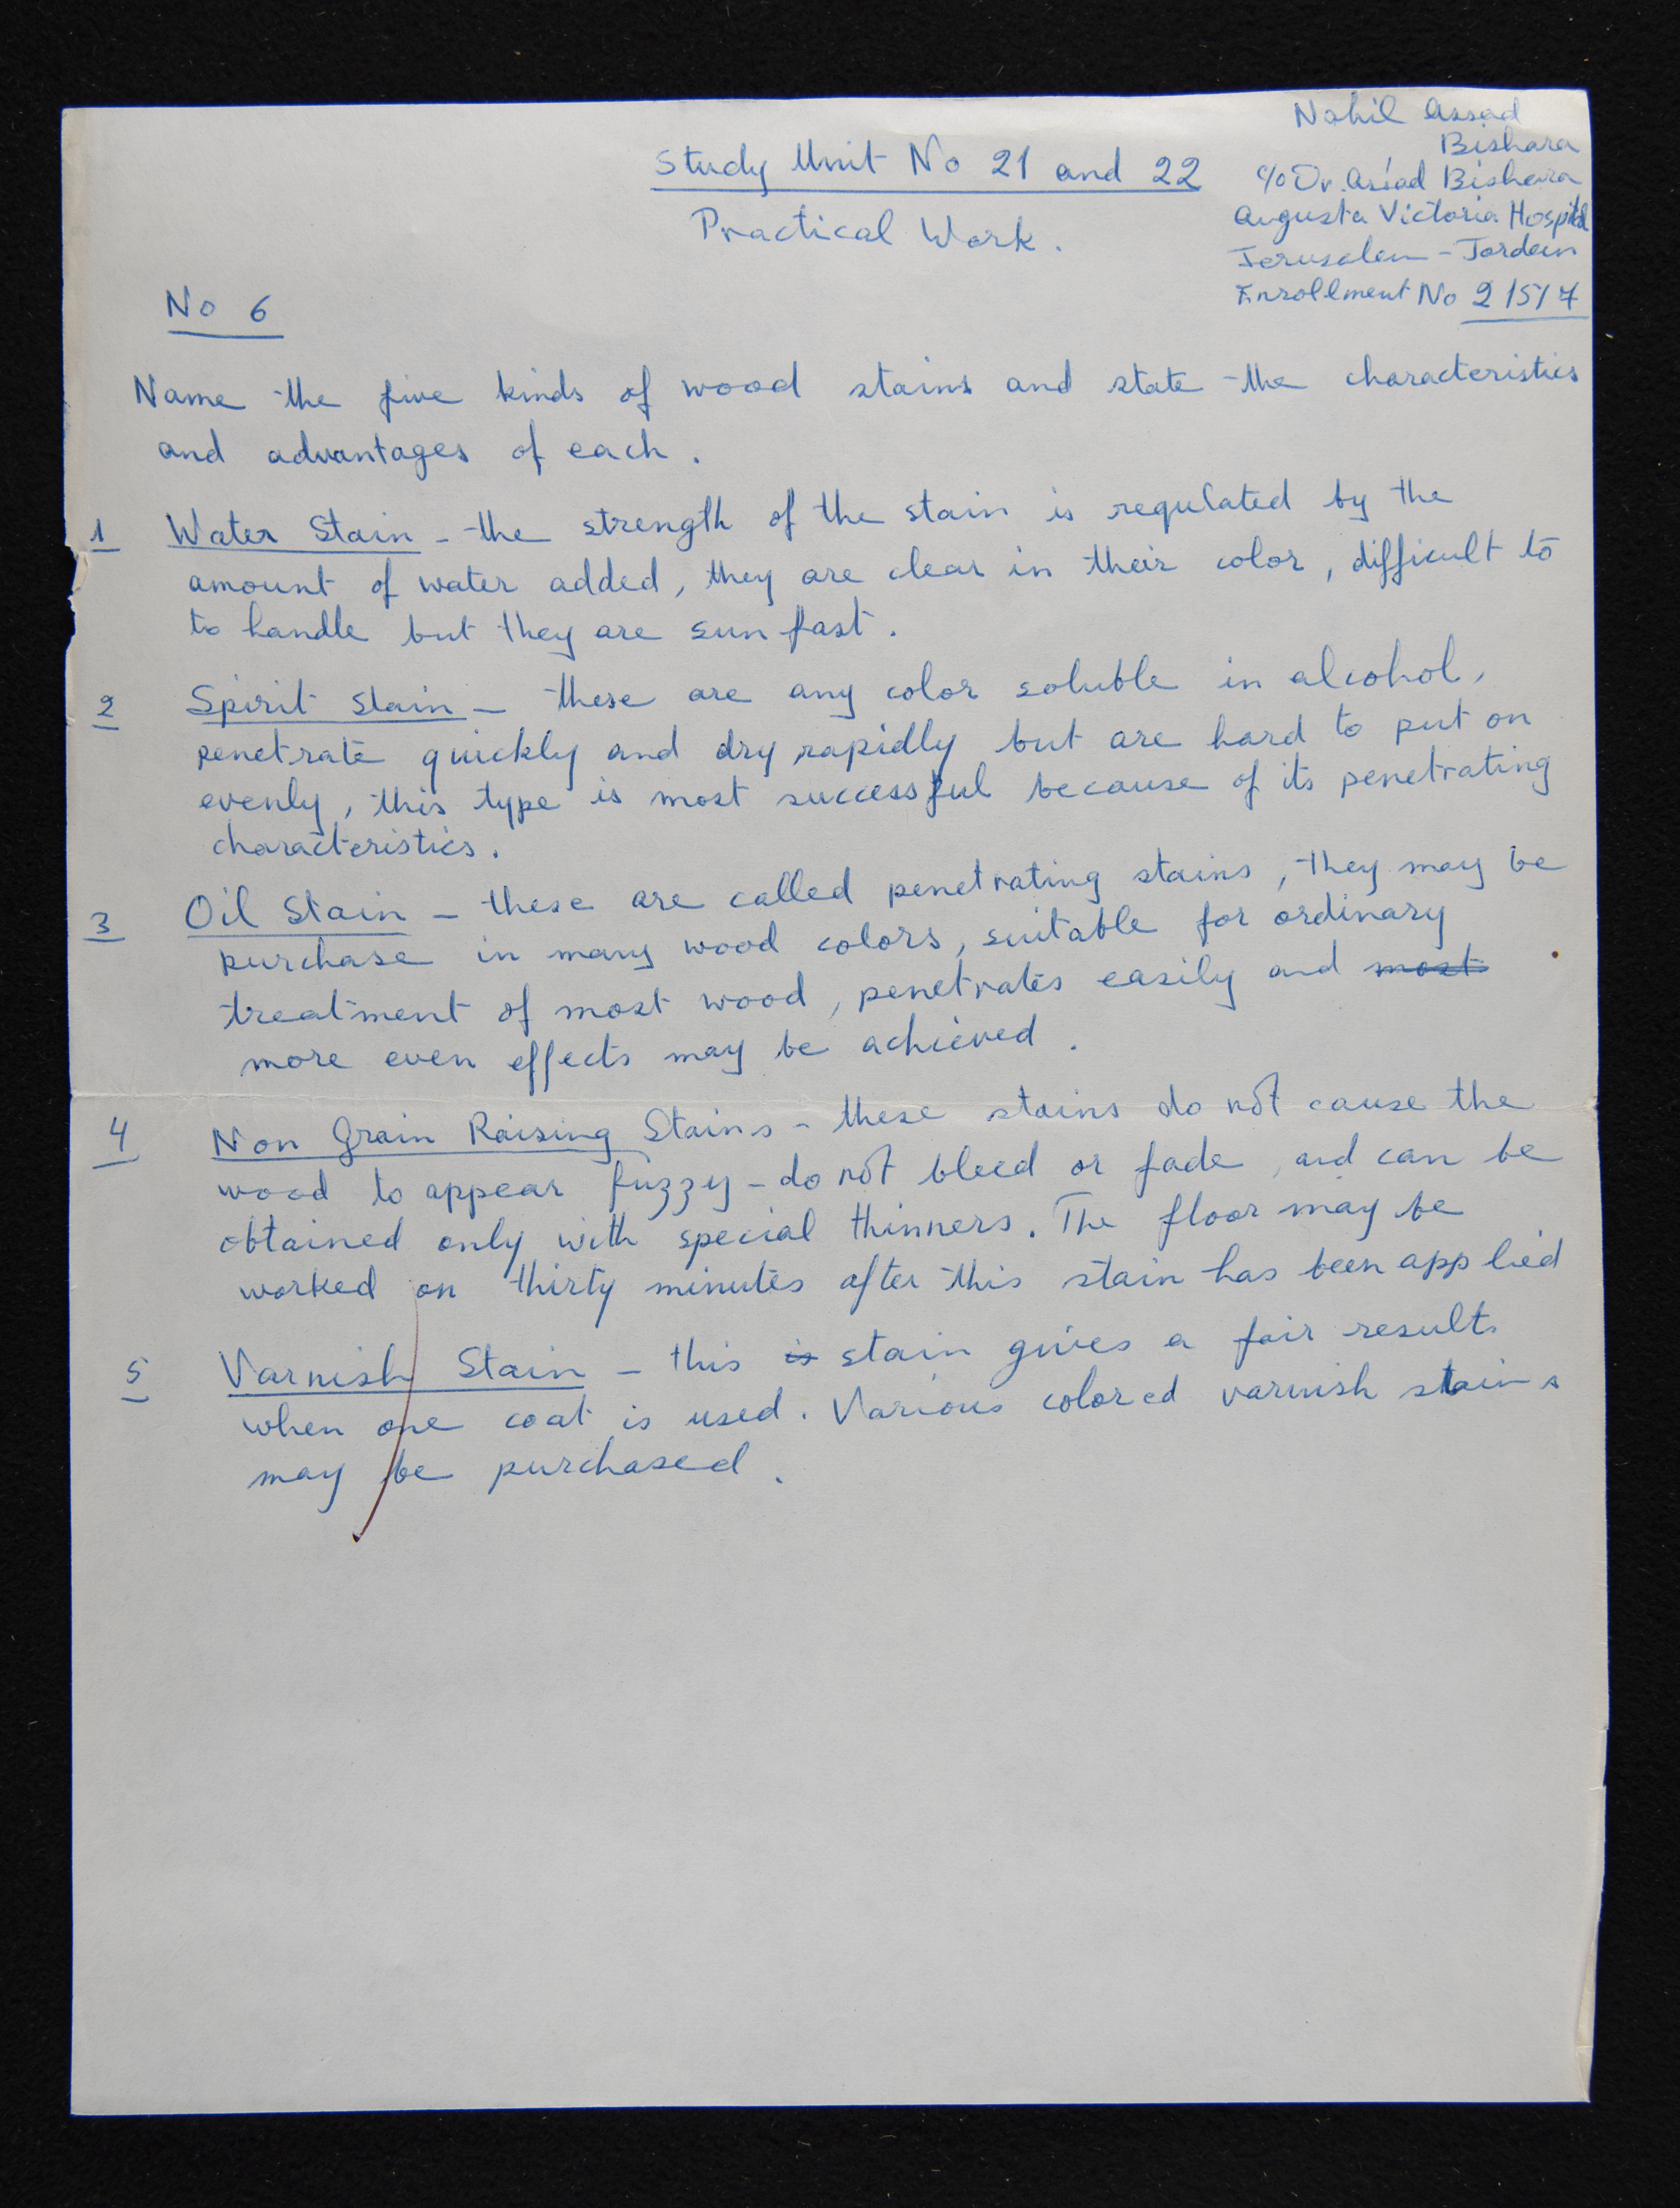 Nahil Assad
Bishara
c/o Dr. Assad Bishara
Augusta Victoria Hospital
Jerusalem - Jordan
Enrollment No 21517
Study Unit No 21 and 22
Practical Work.
No 6
Name the five kinds of wood stains and state the characteristics
and advantages of each.
1 Water Stain - the strength of the stain is regulated by the
amount of water added, they are clear in their color, difficult to
to handle but they are sun fast.
2 Spirit Stain - these are any color soluble in alcohol,
penetrate quickly and dry rapidly but are hard to put on
evenly, this type is most successful because of its penetrating
characteristics.
3 Oil Stain - these are called penetrating stains, they may be
purchase in many wood colors, suitable for ordinary
treatment of most wood, penetrates easily and most
more even effects may be achieved.
4 Non Grain Raising Stains - these stains do not cause the
wood to appear fuzzy - do not bleed or fade, and can be
obtained only with special thinners. The floor may be
worked on thirty minutes after this stain has been applied
5 Varnish Stain - this is stain gives a fair results
when one coat is used. Various colored varnish stains
may be purchased.